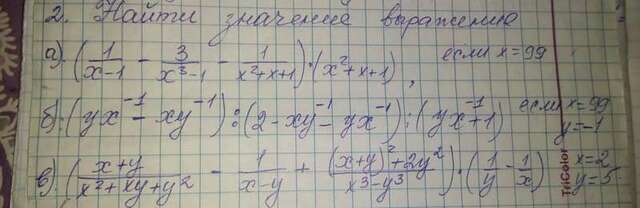 2. Найти значение выражение
а) (1/(x-1) - 3/(x³-1) - 1/(x²+x+1)) · (x²+x+1), если x=99
б) (yx⁻¹ - xy⁻¹) : (2-xy⁻¹-yx⁻¹) : (yx⁻¹+1) если x=99 y=-1
в) ((x+y)/(x²+xy+y²) - 1/(x-y) + ((x+y)²+2y²)/(x³-y³)) · (1/y - 1/x) x=2 y=5
TriColor